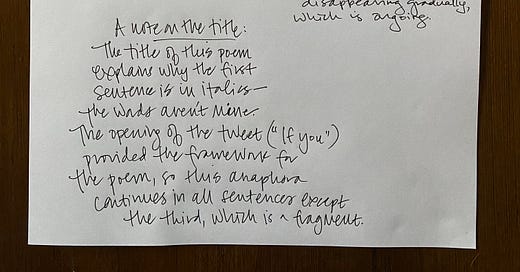 disappearing gradually,
which is ongoing.
A note on the title:
The title of this poem
explains why the first
sentence is in italics—
the words aren't mine.
The opening of the tweet ("If you")
provided the framework for
the poem, so this anaphora
continues in all sentences except
the third, which is a fragment.